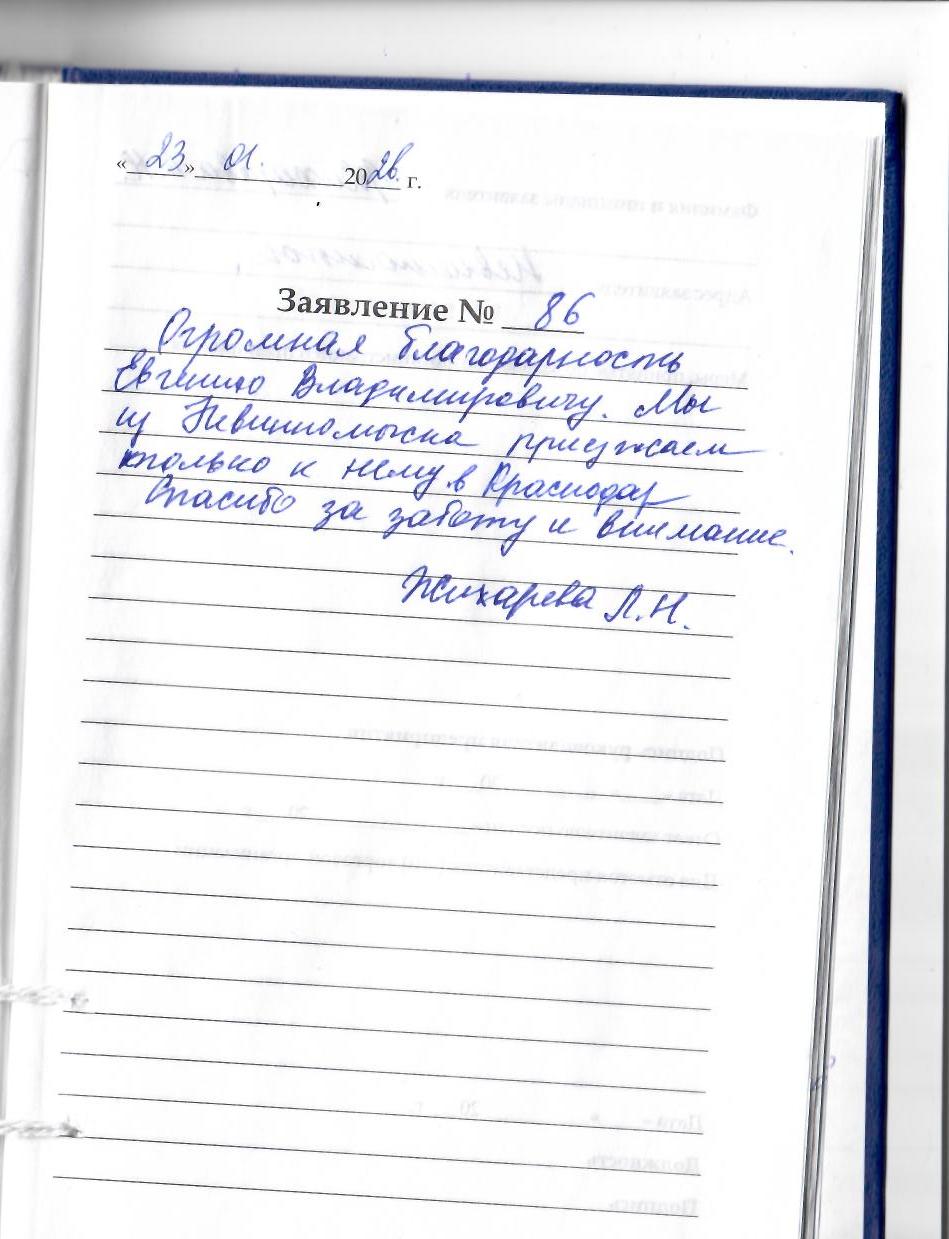 «23» 01. 2026. г.
Заявление № 86
Огромная благодарность
Евгению Владимировичу. Мы
из Невинномысска приезжаем
только к нему в Краснодар
Спасибо за заботу и внимание.
Жихарева Л.Н.